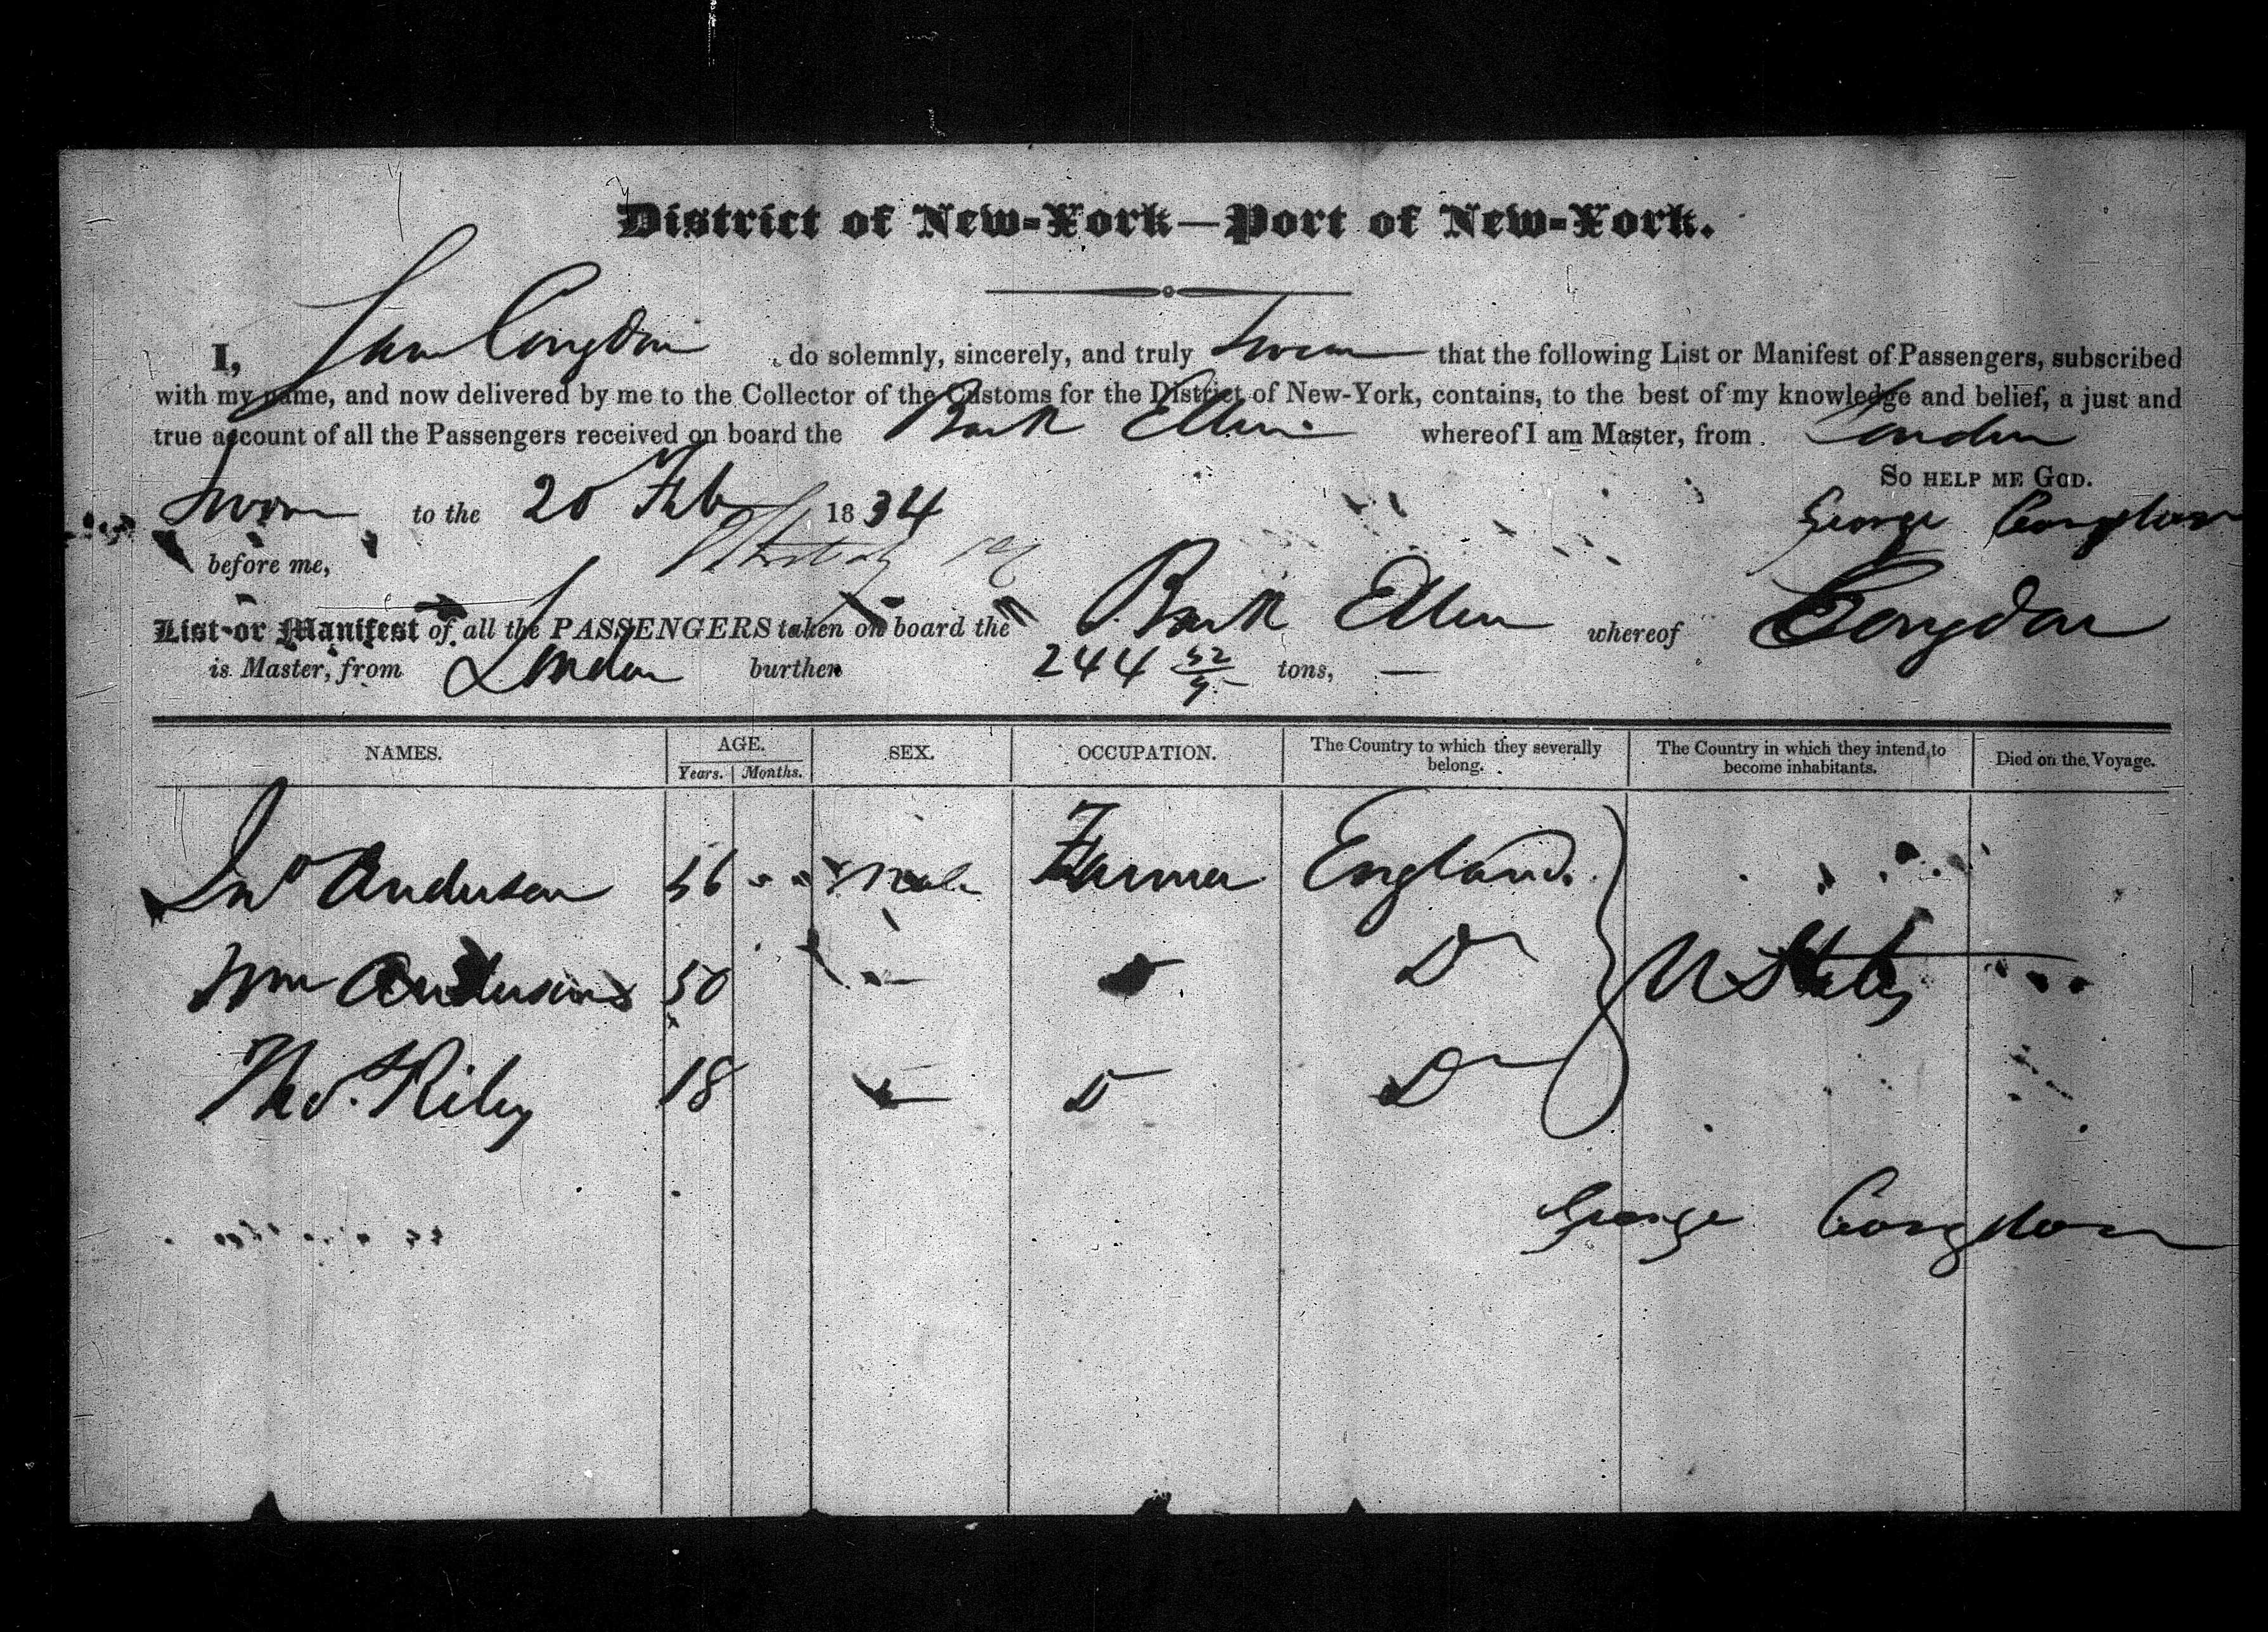 District of New-York—Port of New-York.
I, Congdon do solemnly, sincerely, and truly swear that the following List or Manifest of Passengers, subscribed
with my name, and now delivered by me to the Collector of the Customs for the District of New-York, contains, to the best of my knowledge and belief, a just and
true account of all the Passengers received on board the Bark Ellen whereof I am Master, from London
So help me God.
Sworn to the 20 Feb 1834
George Congdon
before me,
List or Manifest of all the PASSENGERS taken on board the Bark Ellen whereof Congdon
is Master, from London burthen 244 tons, —
NAMES. AGE. Years. Months. SEX. OCCUPATION. The Country to which they severally belong. The Country in which they intend to become inhabitants. Died on the Voyage.
Jno Anderson 56 male Farmer England
Wm Anderson 50 Do U States
Thos. Riley 18 Do Do
George Congdon